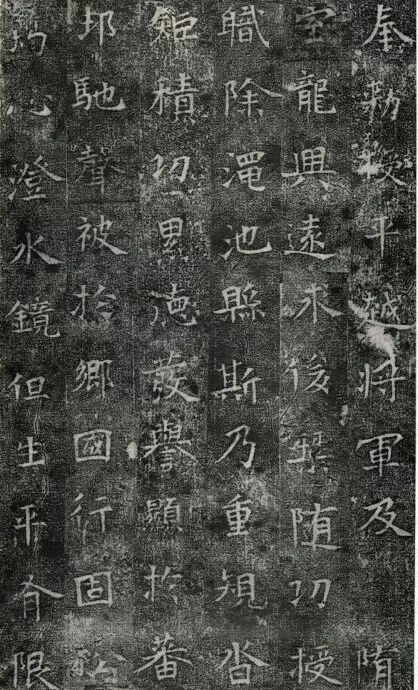 奉勅授平越將軍及隋
室龍興遠求後隨功授
職除澠池縣斯乃重規沓
矩積功累德發譽顯於蕃
邦馳聲被於鄉國行固松
筠心澄水鏡但生平有限